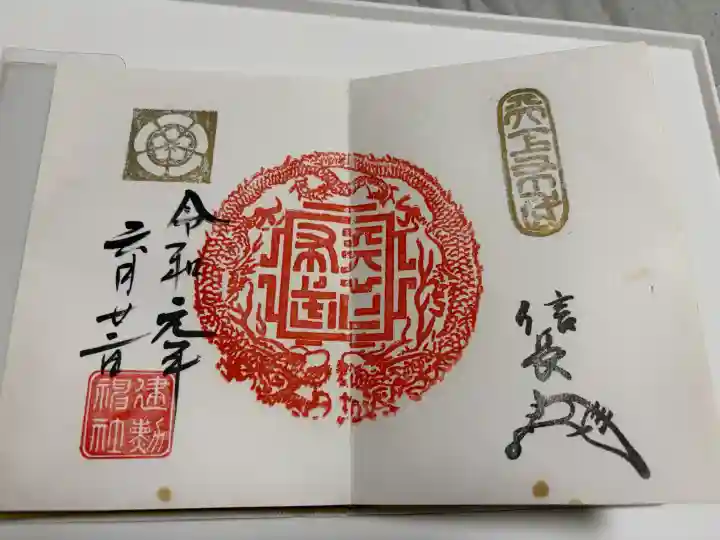 天下布武
信長
天下布武
令和元年
六月廿二日
建勲
神社